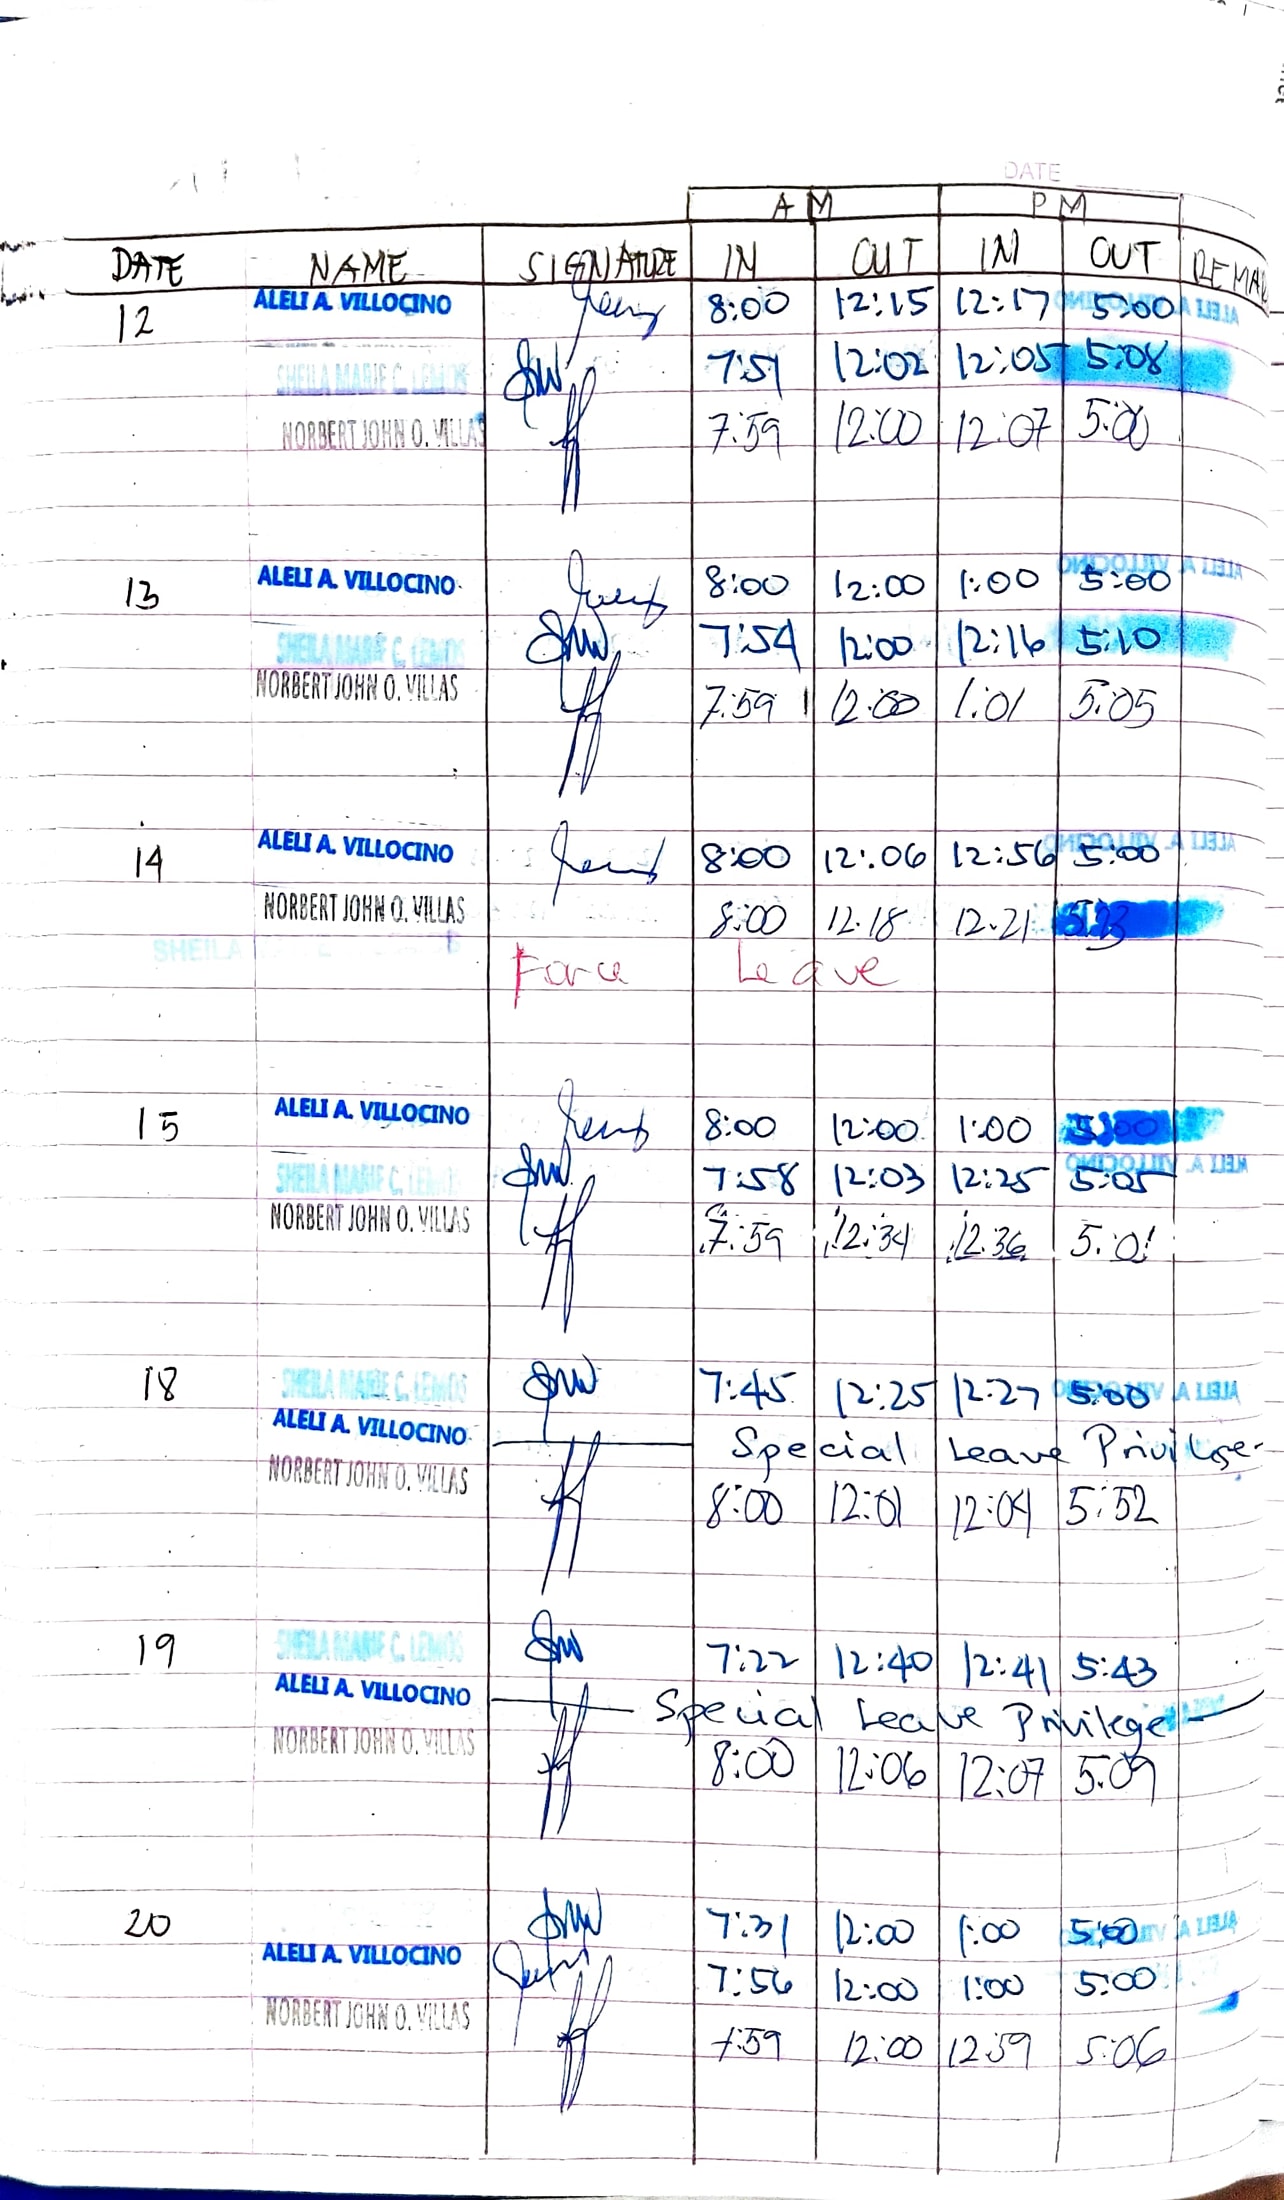 DATE
AM PM
DATE NAME SIGNATURE IN OUT IN OUT REMA
12 ALELI A. VILLOCINO 8:00 12:15 12:17 5:00
SHEILA MARIE C. LEMOS 7:51 12:02 12:05 5:08
NORBERT JOHN O. VILLAS 7:59 12:00 12:07 5:00
13 ALELI A. VILLOCINO 8:00 12:00 1:00 5:00
SHEILA MARIE C. LEMOS 7:54 12:00 12:16 5:10
NORBERT JOHN O. VILLAS 7:59 12:00 1:01 5:05
14 ALELI A. VILLOCINO 8:00 12:06 12:56 5:00
NORBERT JOHN O. VILLAS 8:00 12.18 12.21
SHEILA Force Leave
15 ALELI A. VILLOCINO 8:00 12:00 1:00 5:00
SHEILA MARIE C. LEMOS 7:58 12:03 12:25 5:05
NORBERT JOHN O. VILLAS 7:59 12:34 12:36 5:01
18 SHEILA MARIE C. LEMOS 7:45 12:25 12:27 5:00
ALELI A. VILLOCINO Special Leave Privilege
NORBERT JOHN O. VILLAS 8:00 12:01 12:04 5:52
19 SHEILA MARIE C. LEMOS 7:22 12:40 12:41 5:43
ALELI A. VILLOCINO Special Leave Privilege
NORBERT JOHN O. VILLAS 8:00 12:06 12:07 5:09
20 7:31 12:00 1:00 5:00
ALELI A. VILLOCINO 7:56 12:00 1:00 5:00
NORBERT JOHN O. VILLAS 7:59 12:00 12:59 5:06